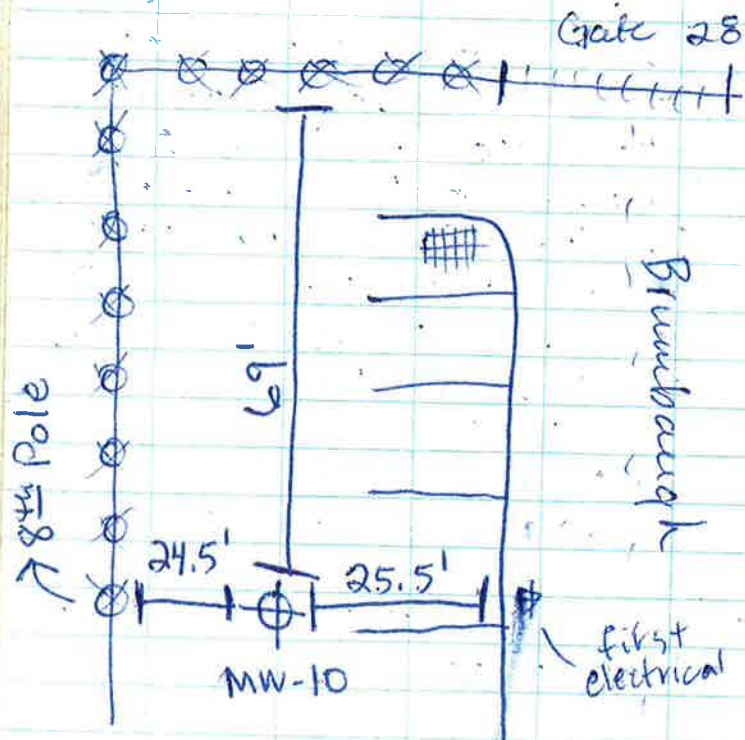 Gate 28
Brumbaugh
8th Pole
24.5'
25.5'
MW-10
first
electrical